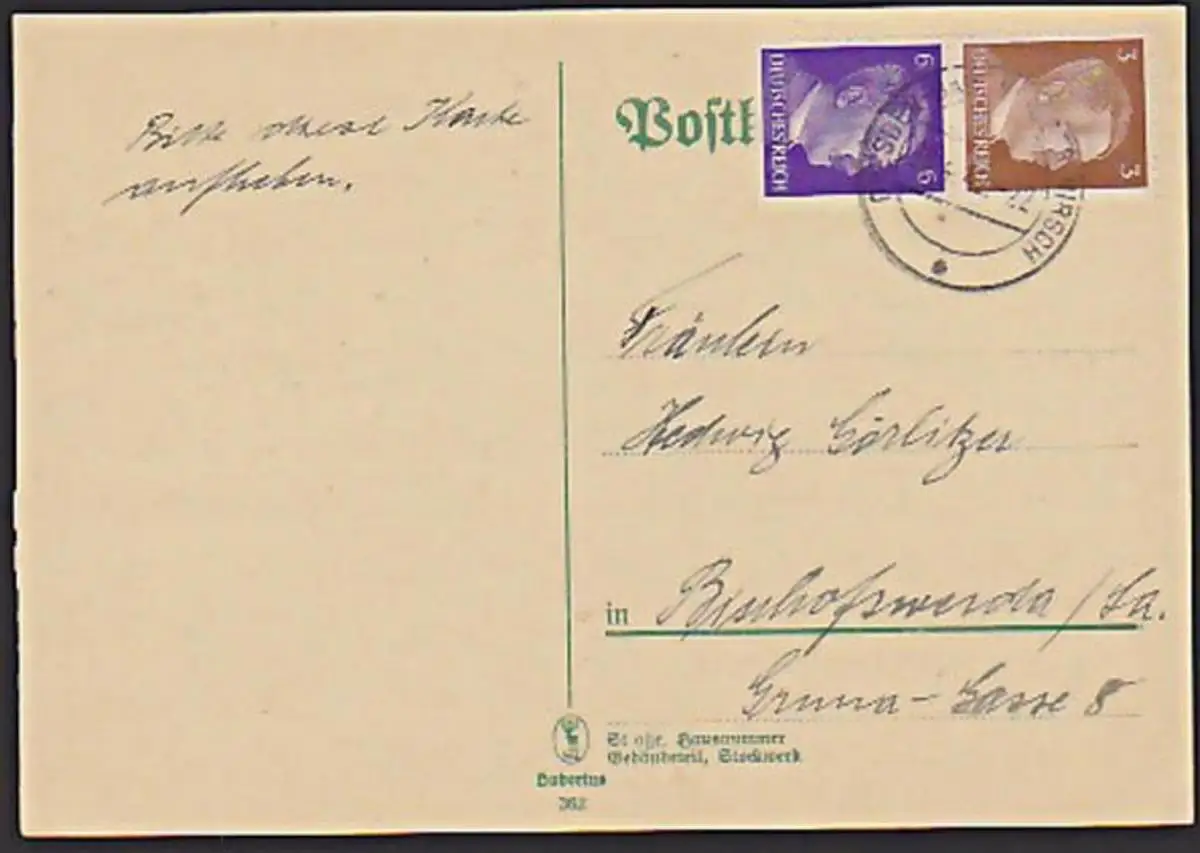 Bitte diese Karte
aufheben.
Postk
6 DEUTSCHES REICH 6
3 DEUTSCHES REICH 3
HIRSCH
Fräulein
Hedwig Görlitzer
in Bischofswerda / Sa.
Gruna-Gasse 8
Straße, Hausnummer
Gebäudeteil, Stockwerk
Hubertus